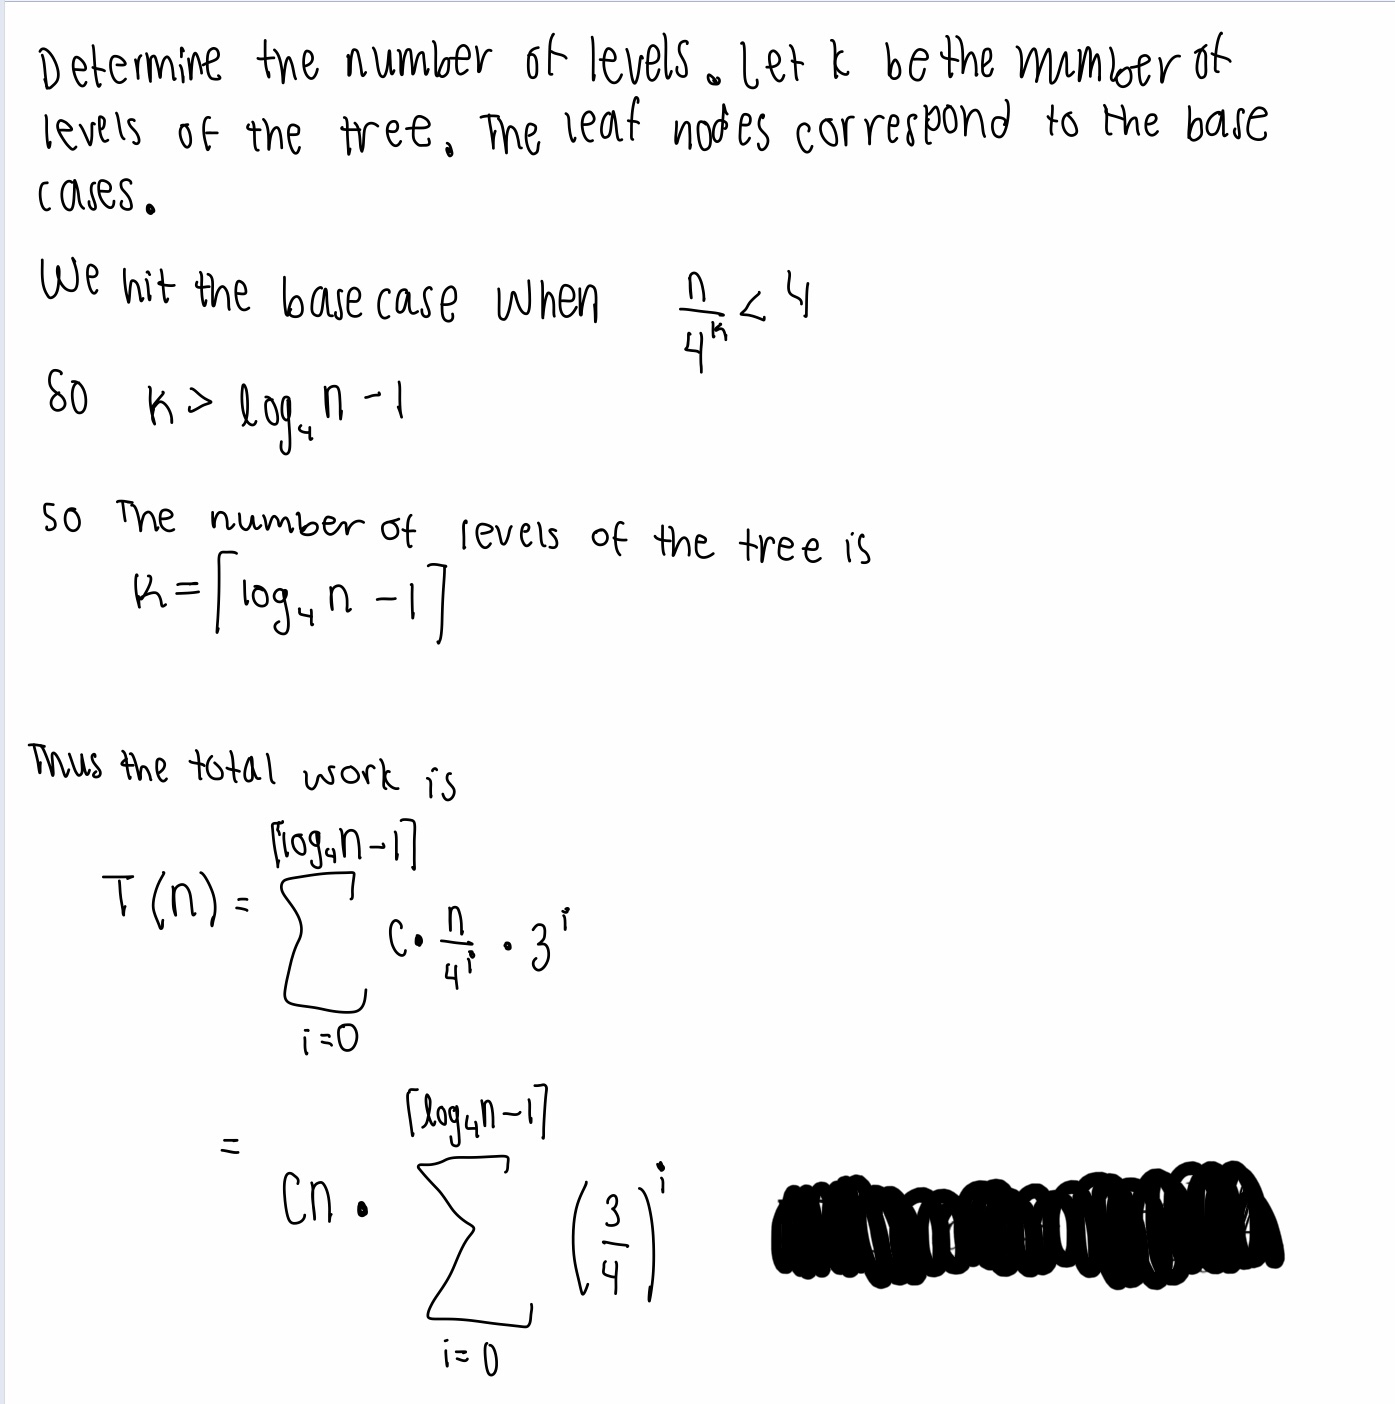 Determine the number of levels. Let k be the number of
levels of the tree. The leaf nodes correspond to the base
cases.
We hit the base case when n/4^k < 4
So k > log₄ n - 1
So The number of levels of the tree is
k = ⌈log₄ n - 1⌉
Thus the total work is
T(n) = ∑_{i=0}^{⌈log₄n-1⌉} c · n/4^i · 3^i
= Cn · ∑_{i=0}^{⌈log₄n-1⌉} (3/4)^i